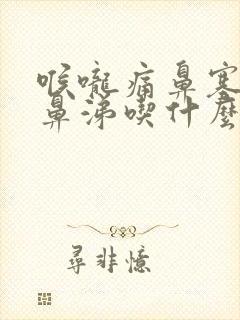 喉嚨痛鼻塞
鼻涕喫什麼
尋非憶